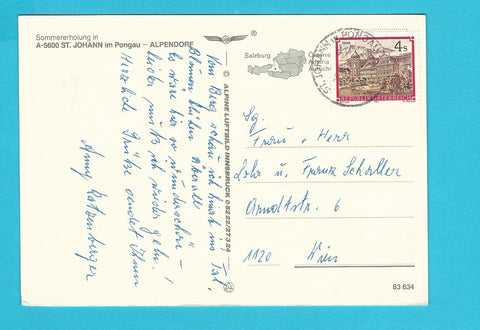 Sommererholung in
A-5600 ST. JOHANN im Pongau – ALPENDORF
Vom Berg schau ich hinab ins Tal,
Blumen blühen überall.
Es wäre hier so wunderschön – !
leider muß ich wieder gehn.
Herzliche Grüße sendet Ihnen
Anny Katzenberger
© ALPINE LUFTBILD INNSBRUCK 05222/27324
Salzburg
Austria
ST. JOHANN IM PONGAU
4 S
REPUBLIK ÖSTERREICH
Sg.
Frau + Herr
u. Franz Schaller
Arndtstr. 6
1120 Wien
83 634